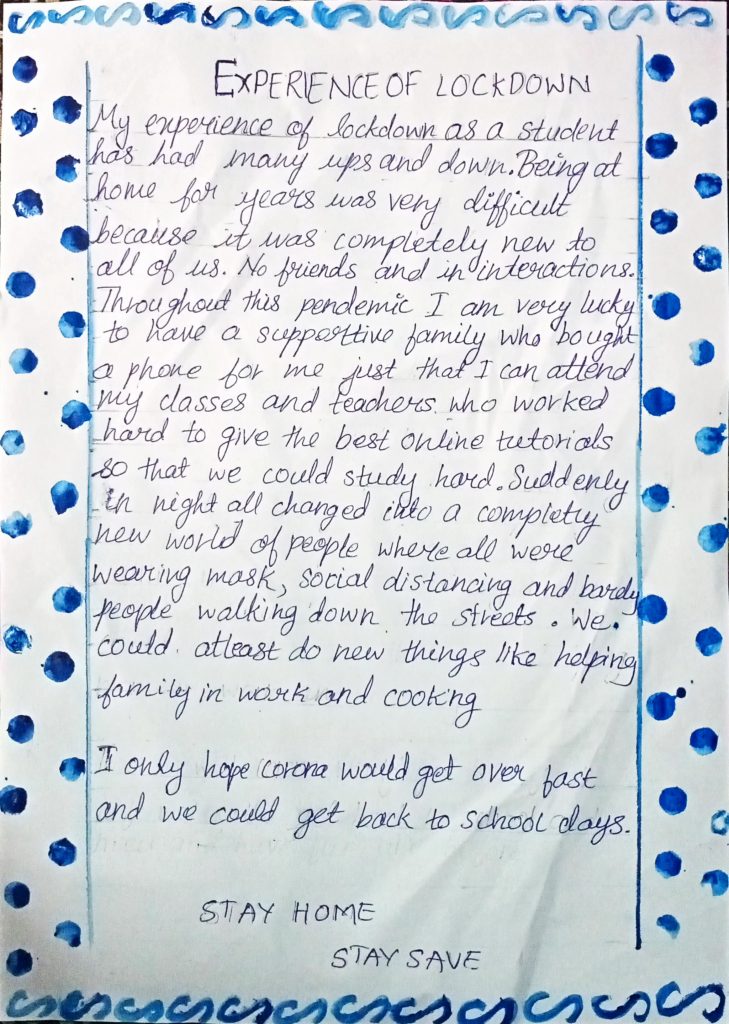 EXPERIENCE OF LOCKDOWN
My experience of lockdown as a student
has had many ups and down. Being at
home for years was very difficult
because it was completely new to
all of us. No friends and in interactions.
Throughout this pendemic I am very lucky
to have a supporttive family who bought
a phone for me just that I can attend
my classes and teachers who worked
hard to give the best online tutorials
so that we could study hard. Suddenly
in night all changed into a completry
new world of people where all were
wearing mask, social distancing and barely
people walking down the streets. We.
could atleast do new things like helping
family in work and cooking
I only hope corona would get over fast
and we could get back to school days.
STAY HOME
STAY SAVE